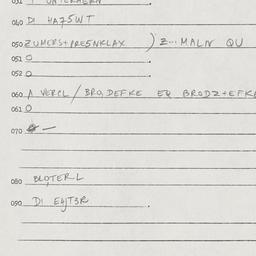 040 DI HA75WT
050 ZUMERS+PRE5NKLAX ) Z... MALN QU
051 O
052 O
060 A VERCL / BRO, DEFKE EQ BRODZ+EFK
061 O
070
080 BLOTERL
090 DI E4JT3R